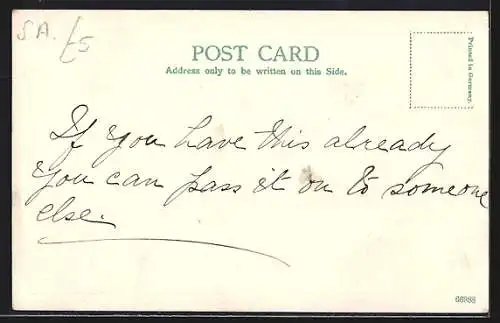 SA. £5
POST CARD
Address only to be written on this Side.
Printed in Germany.
If you have this already
you can pass it on to someone
else.